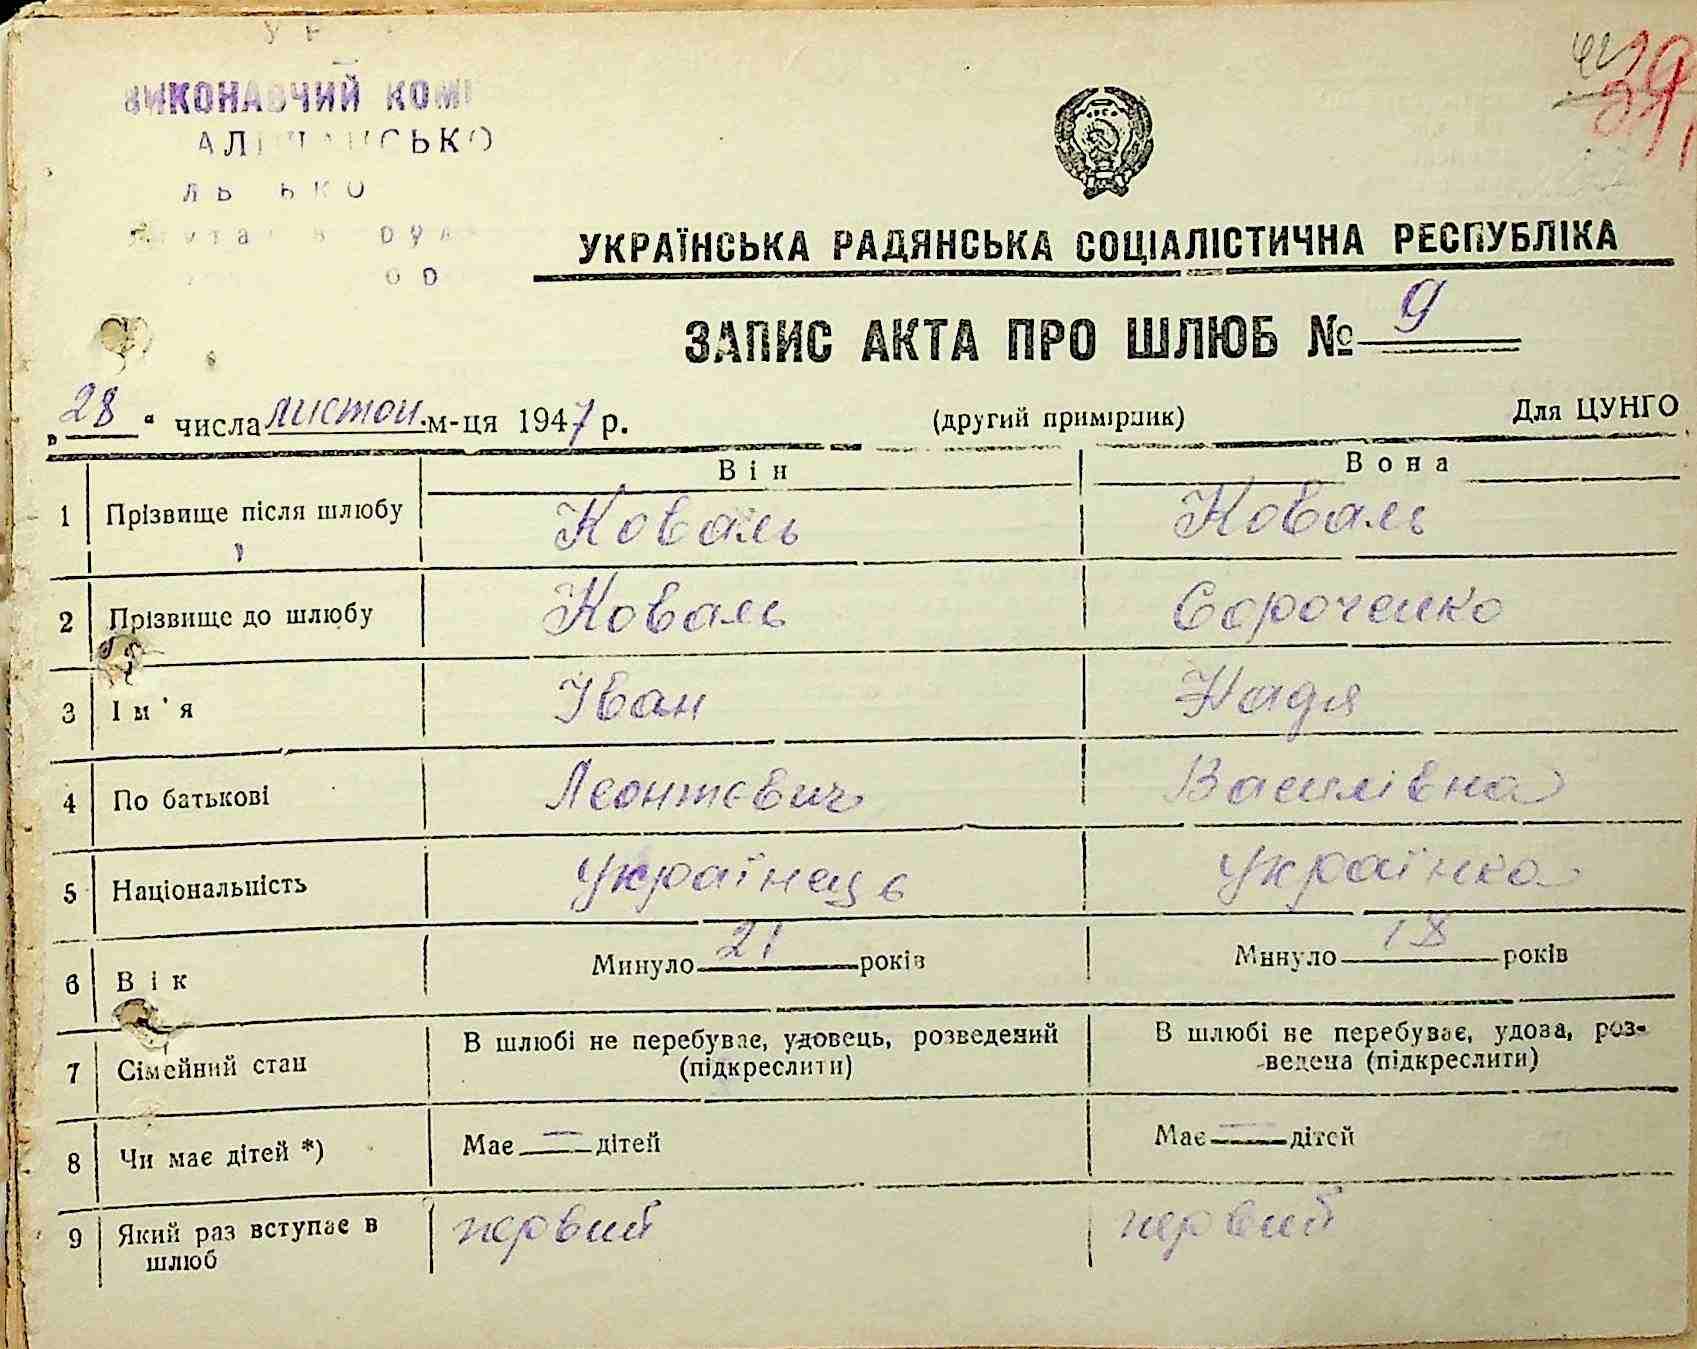 ВИКОНАВЧИЙ КОМІ
УКРАЇНСЬКА РАДЯНСЬКА СОЦІАЛІСТИЧНА РЕСПУБЛІКА
ЗАПИС АКТА ПРО ШЛЮБ № 9
„28“ числа листоп. м-ця 1947 р. (другий примірник) Для ЦУНГО
Він Вона
1 Прізвище після шлюбу Коваль Коваль
2 Прізвище до шлюбу Коваль Сороченко
3 Ім'я Іван Надя
4 По батькові Леонтєвич Василівна
5 Національність Українець Українка
6 Вік Минуло 21 років Минуло 18 років
7 Сімейний стан В шлюбі не перебуває, удовець, розведений (підкреслити) В шлюбі не перебуває, удова, роз-ведена (підкреслити)
8 Чи має дітей *) Має — дітей Має — дітей
9 Який раз вступає в шлюб первий первий